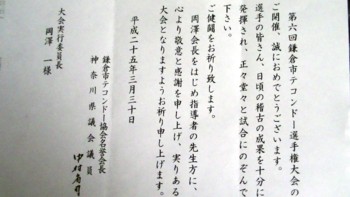 第六回鎌倉市テコンドー選手権大会の
ご開催、誠におめでとうございます。
選手の皆さん、日頃の稽古の成果を十分に
発揮され、正々堂々と試合にのぞんで
下さい。
ご健闘をお祈り致します。
岡澤会長をはじめ指導者の先生方に、
心より敬意と感謝を申し上げ、実りある
大会となりますようお祈り申し上げます。
平成二十五年三月三十日
鎌倉市テコンドー協会名誉会長
神奈川県議会議員
中村省司
大会実行委員長
岡澤 一様